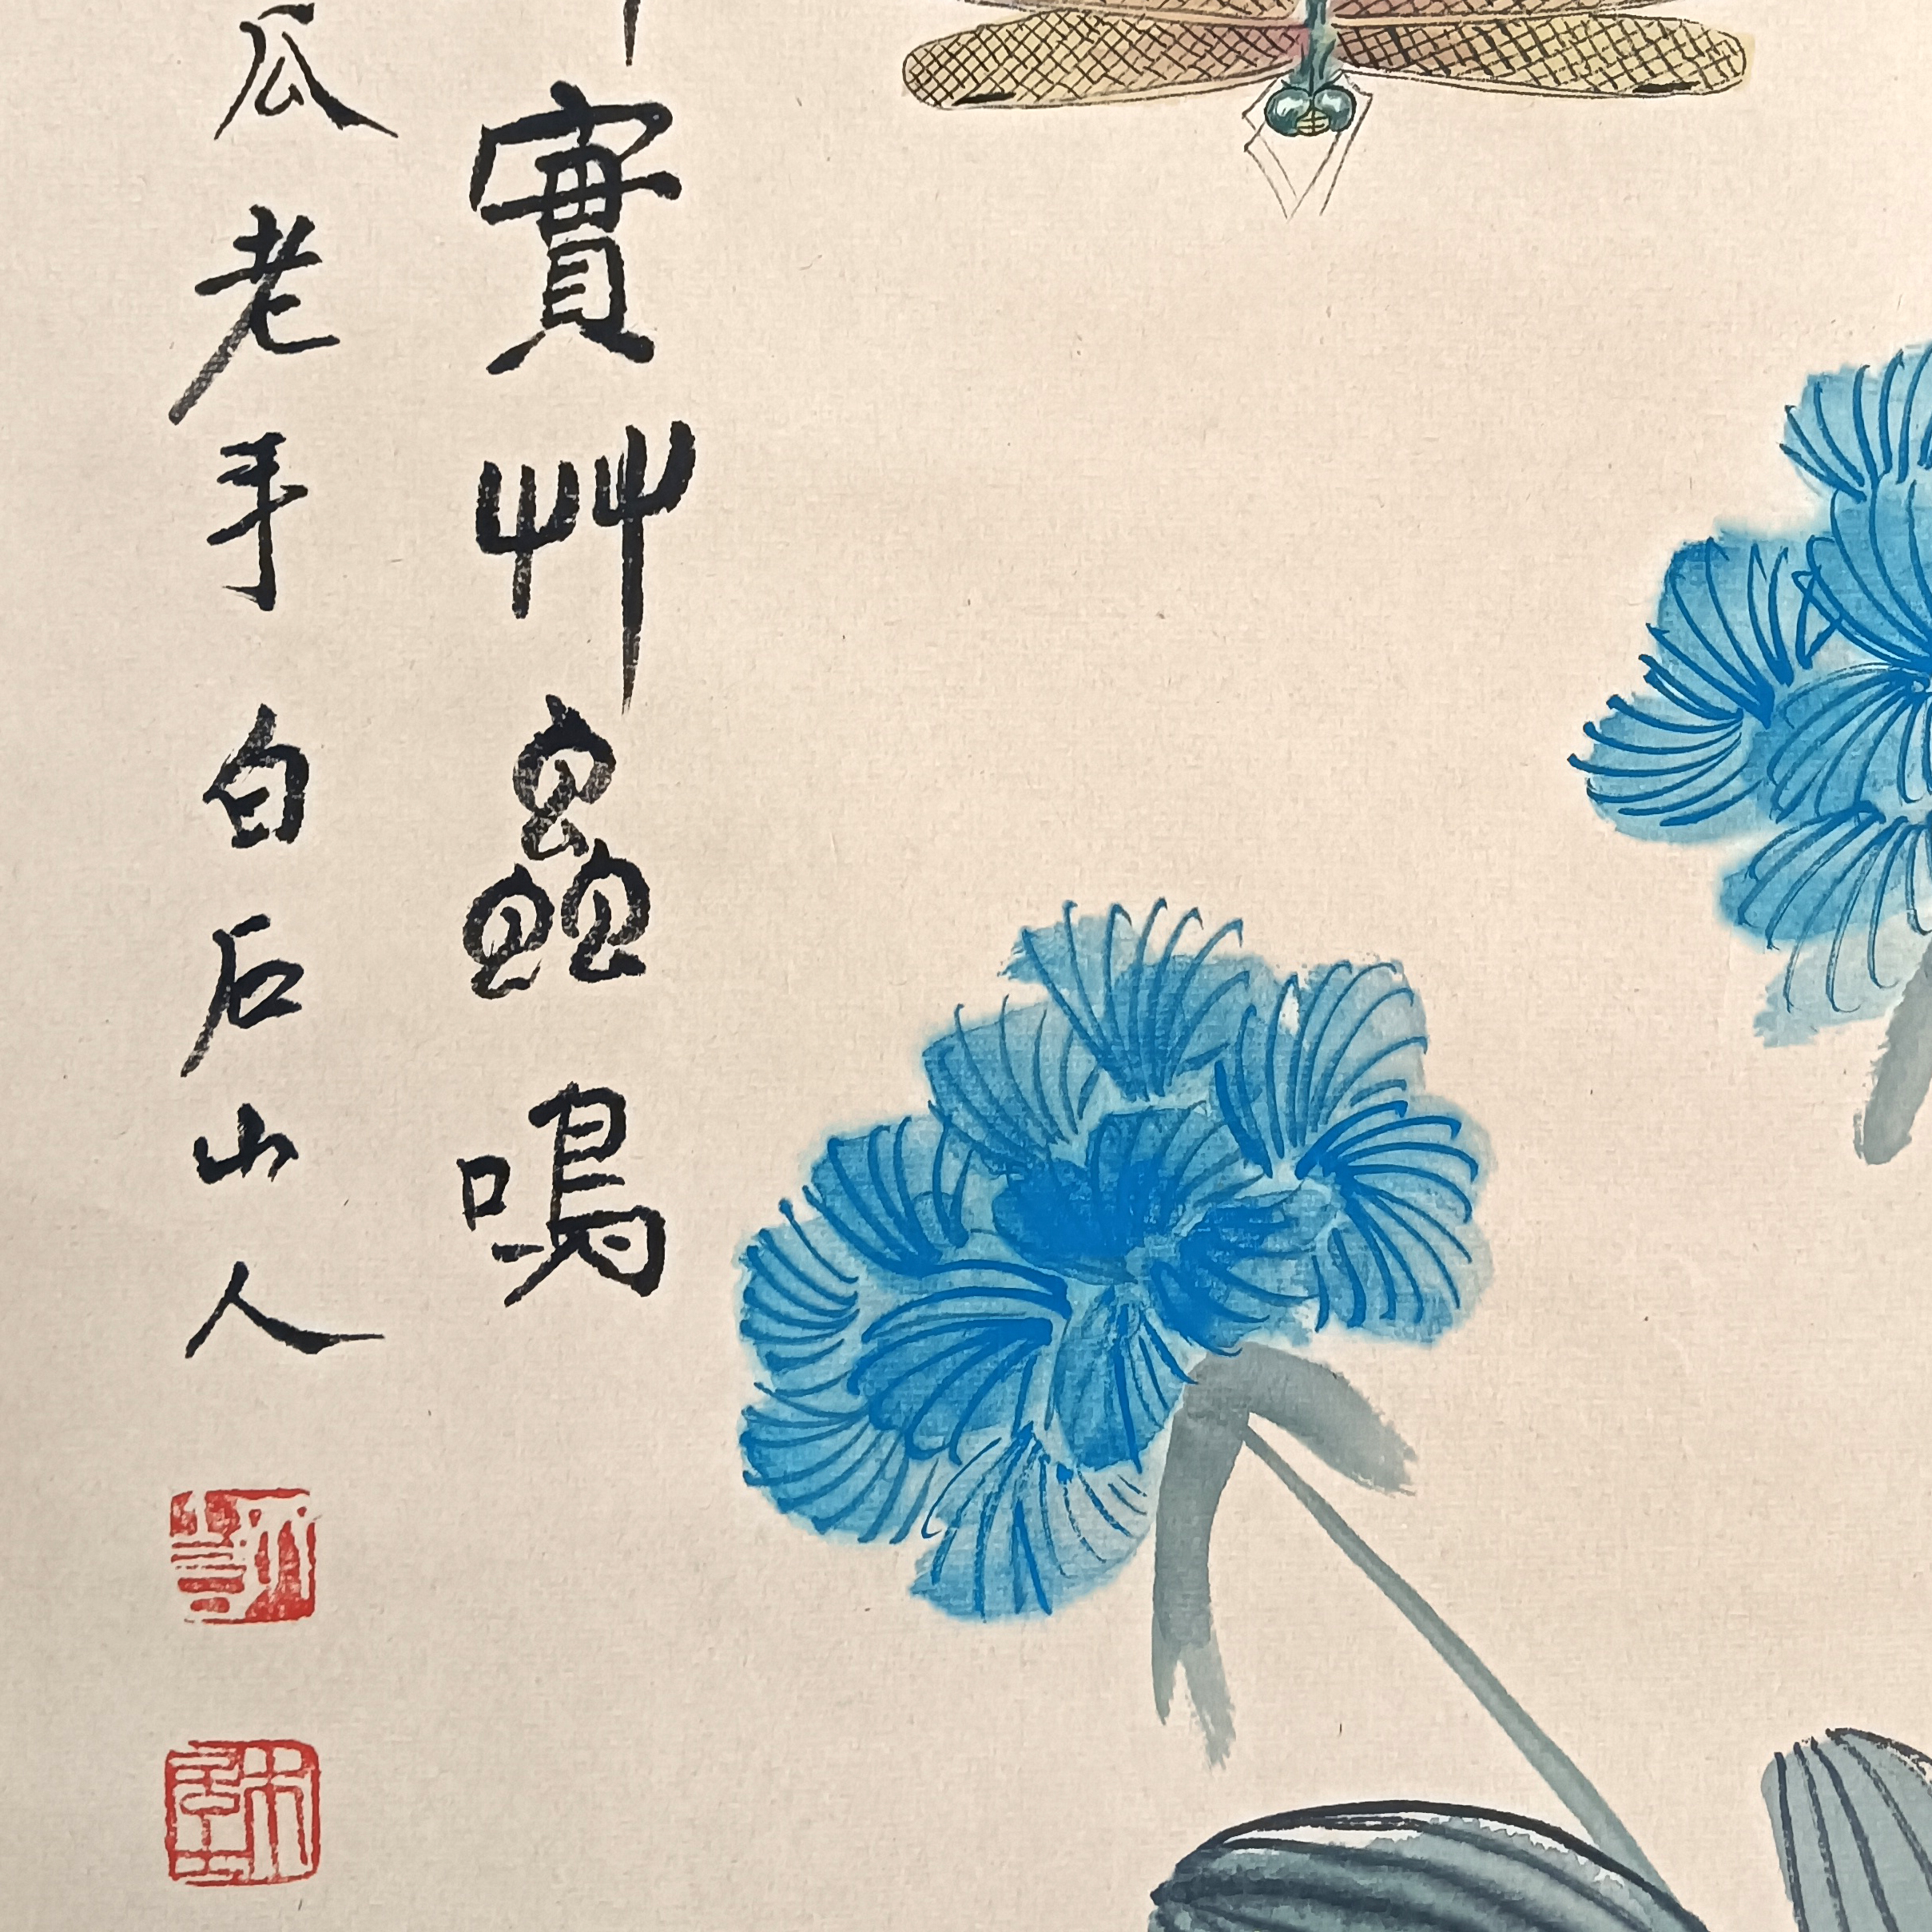 實艸蟲鳴
瓜老手白石山人